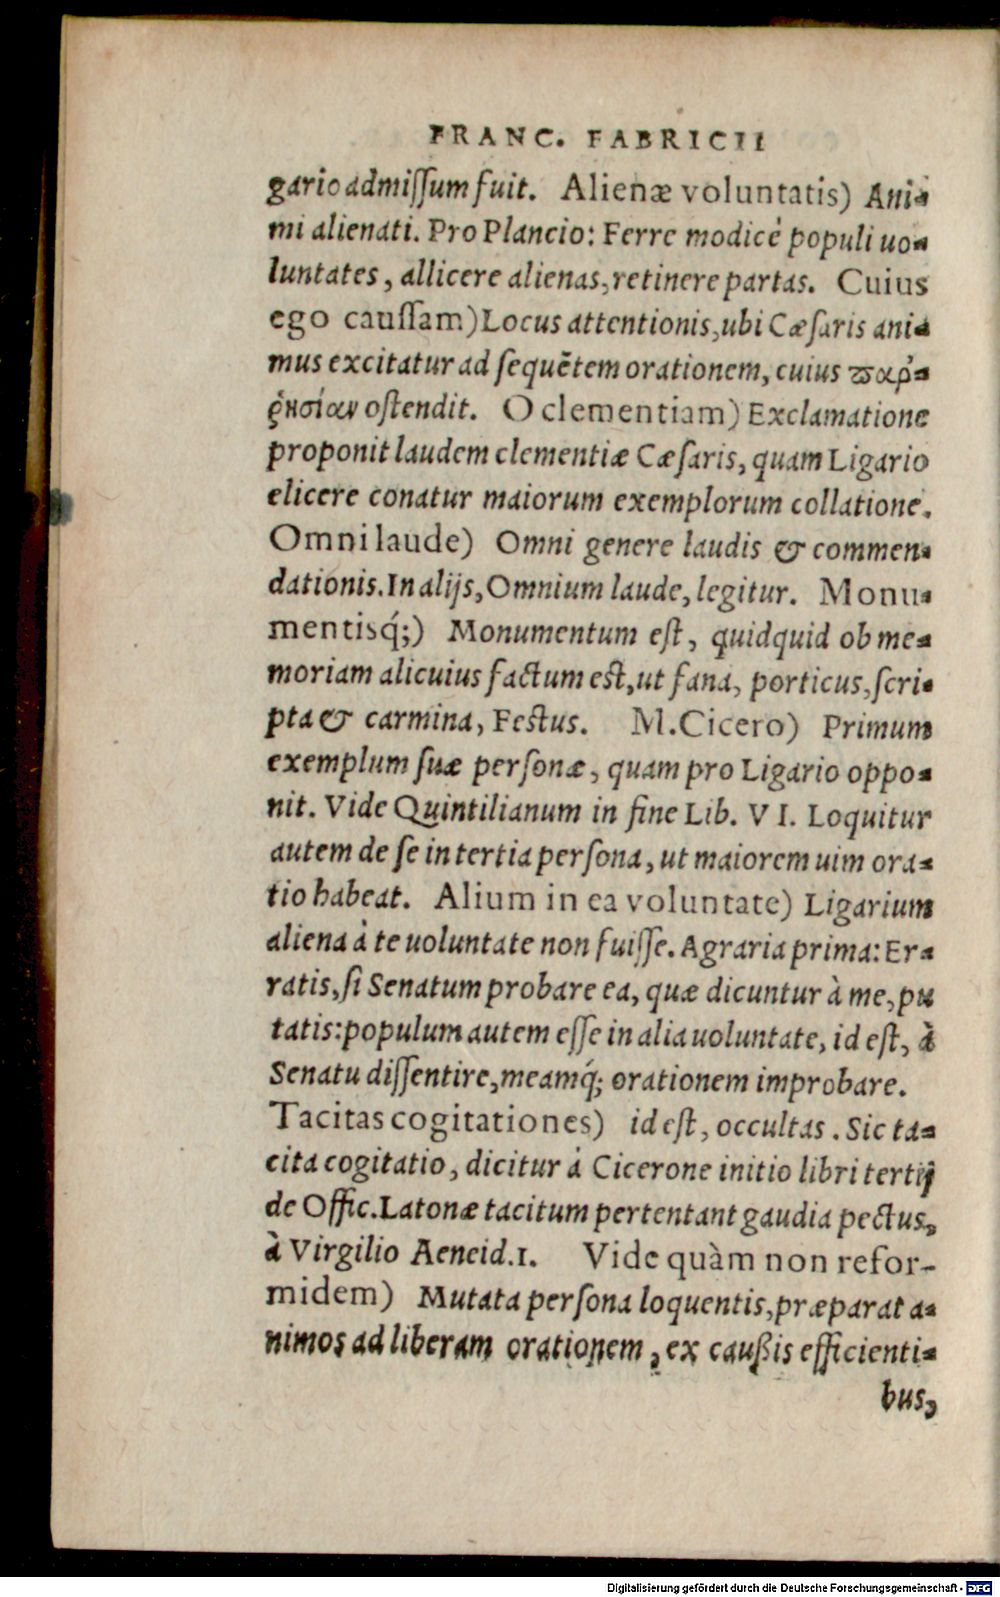 FRANC. FABRICII
gario admiſſum fuit. Alienæ voluntatis) Ani-
mi alienati. Pro Plancio: Ferre modicè populi uo-
luntates, allicere alienas, retinere partas. Cuius
ego cauſſam) Locus attentionis, ubi Cæſaris ani-
mus excitatur ad ſequētem orationem, cuius παῤ-
ῥησίαν oſtendit. O clementiam) Exclamatione
proponit laudem clementiæ Cæſaris, quam Ligario
elicere conatur maiorum exemplorum collatione.
Omni laude) Omni genere laudis & commen-
dationis. In alijs, Omnium laude, legitur. Monu-
mentisq́;) Monumentum eſt, quidquid ob me-
moriam alicuius factum eſt, ut fana, porticus, ſcri-
pta & carmina, Feſtus. M. Cicero) Primum
exemplum ſuæ perſonæ, quam pro Ligario oppo-
nit. Vide Quintilianum in fine Lib. VI. Loquitur
autem de ſe in tertia perſona, ut maiorem uim ora-
tio habeat. Alium in ea voluntate) Ligarium
aliena à te uoluntate non fuiſſe. Agraria prima: Er-
ratis, ſi Senatum probare ea, quæ dicuntur à me, pu
tatis: populum autem eſſe in alia uoluntate, id eſt, à
Senatu diſſentire, meamq́; orationem improbare.
Tacitas cogitationes) id eſt, occultas. Sic ta-
cita cogitatio, dicitur à Cicerone initio libri tertij
de Offic. Latonæ tacitum pertentant gaudia pectus,
à Virgilio Aeneid. 1. Vide quàm non refor-
midem) Mutata perſona loquentis, præparat a-
nimos ad liberam orationem, ex cauſsis efficienti-
bus,
Digitalisierung gefördert durch die Deutsche Forschungsgemeinschaft - DFG